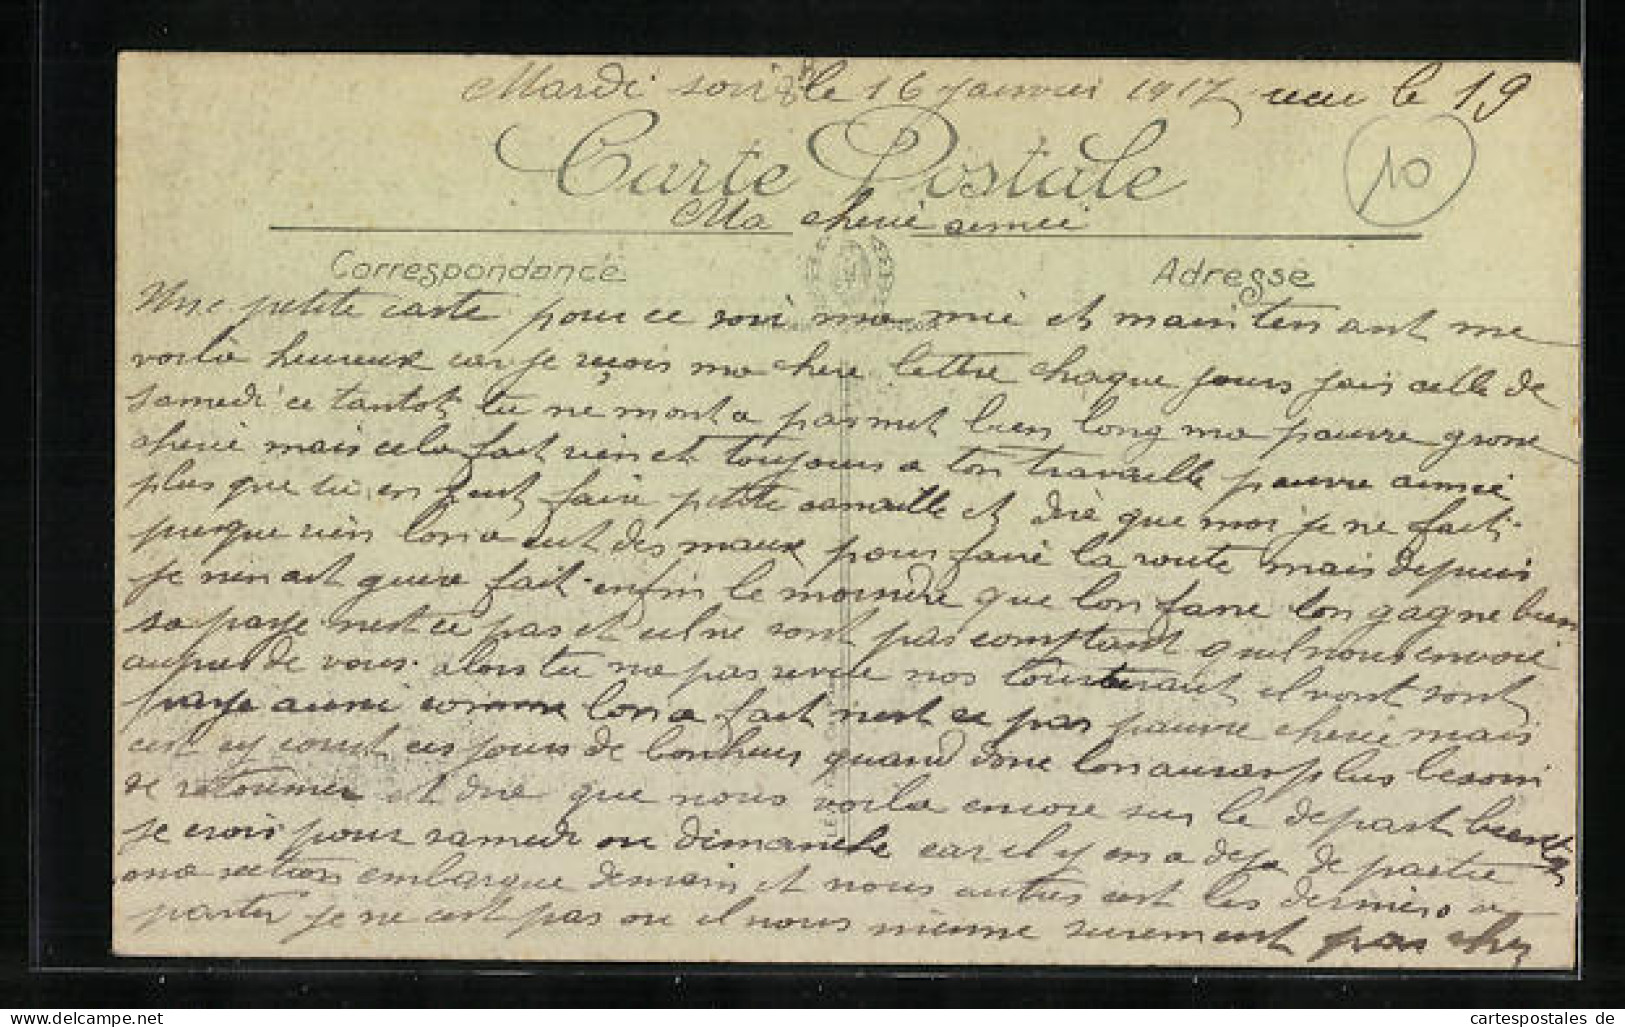 Mardi soir 8h le 16 janvier 1917 reçu le 19
Carte Postale
10
Ma cherie aimeé
Correspondance
Adresse
Une petite carte pour ce soir ma mie et maintenant me
voila heureux car je reçois ma chere lettre chaque jours jais celle de
samedi ce tantot tu ne mont a pas mit bien long ma pauvre grosse
cherie mais cela fait rien et toujours a ton travaille pauvre aimeé
plus que tu en peut faire petite canaille et dire que moi je ne fait
presque rien lon a eut des maux pour faire la route mais depuis
je nen ait guere fait enfin le moindre que lon fasse lon gagne bien
sa paye nest ce pas et il ne sont pas comptant quil nous envoie
aupres de vous alors tu na pas revue nos il vont sont
paye aussi comme lon a fait nest ce pas pauvre cherie mais
cest cy court ces jours de bonheur quand donc lon auras plus besoin
de retourner et dire que nous voila encore sur le depart
je crois pour samedi ou dimanche car il y en a deja de partie
ma section embarque demain et nous autres cest les derniers a
partir je ne cest pas ou il nous mene surement pas
LE
www.cartespostales.de
cartespostales de